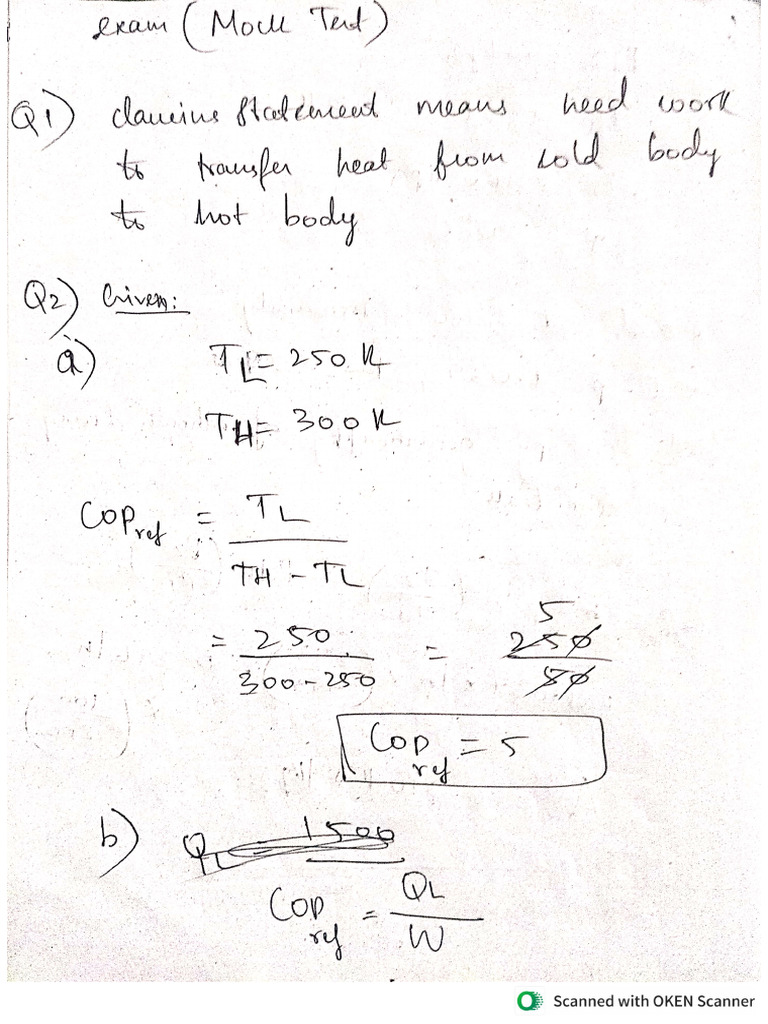 exam (Mock Test)
Q1) clausius statement means need work
to transfer heat from cold body
to hot body
Q2) Given:
a) TL = 250 K
TH = 300 K
COPref = TL / TH - TL
= 250 / 300-250 = 5 250 / 50
COPref = 5
b) QL = 1500
COPref = QL / W
Scanned with OKEN Scanner